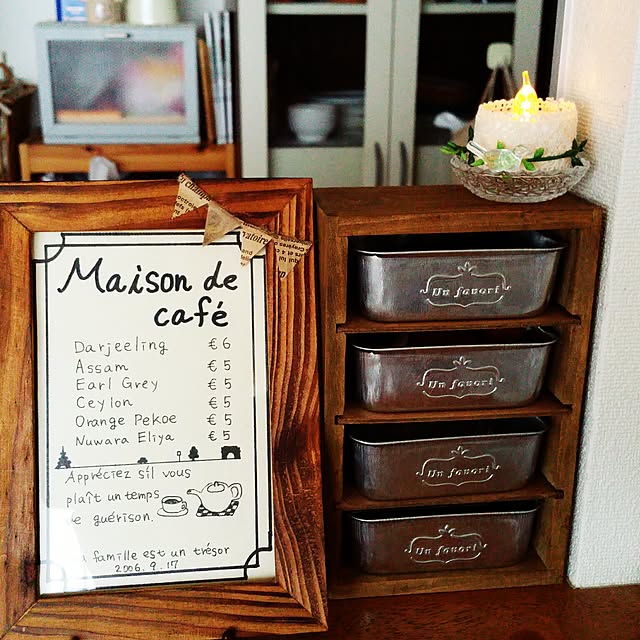 Maison de
café
Darjeeling € 6
Assam € 5
Earl Grey € 5
Ceylon € 5
Orange Pekoe € 5
Nuwara Eliya € 5
Appréciez s'il vous
plaît un temps
de guérison.
famille est un trésor
2006.9.17
Un favori
Un favori
Un favori
Un favori